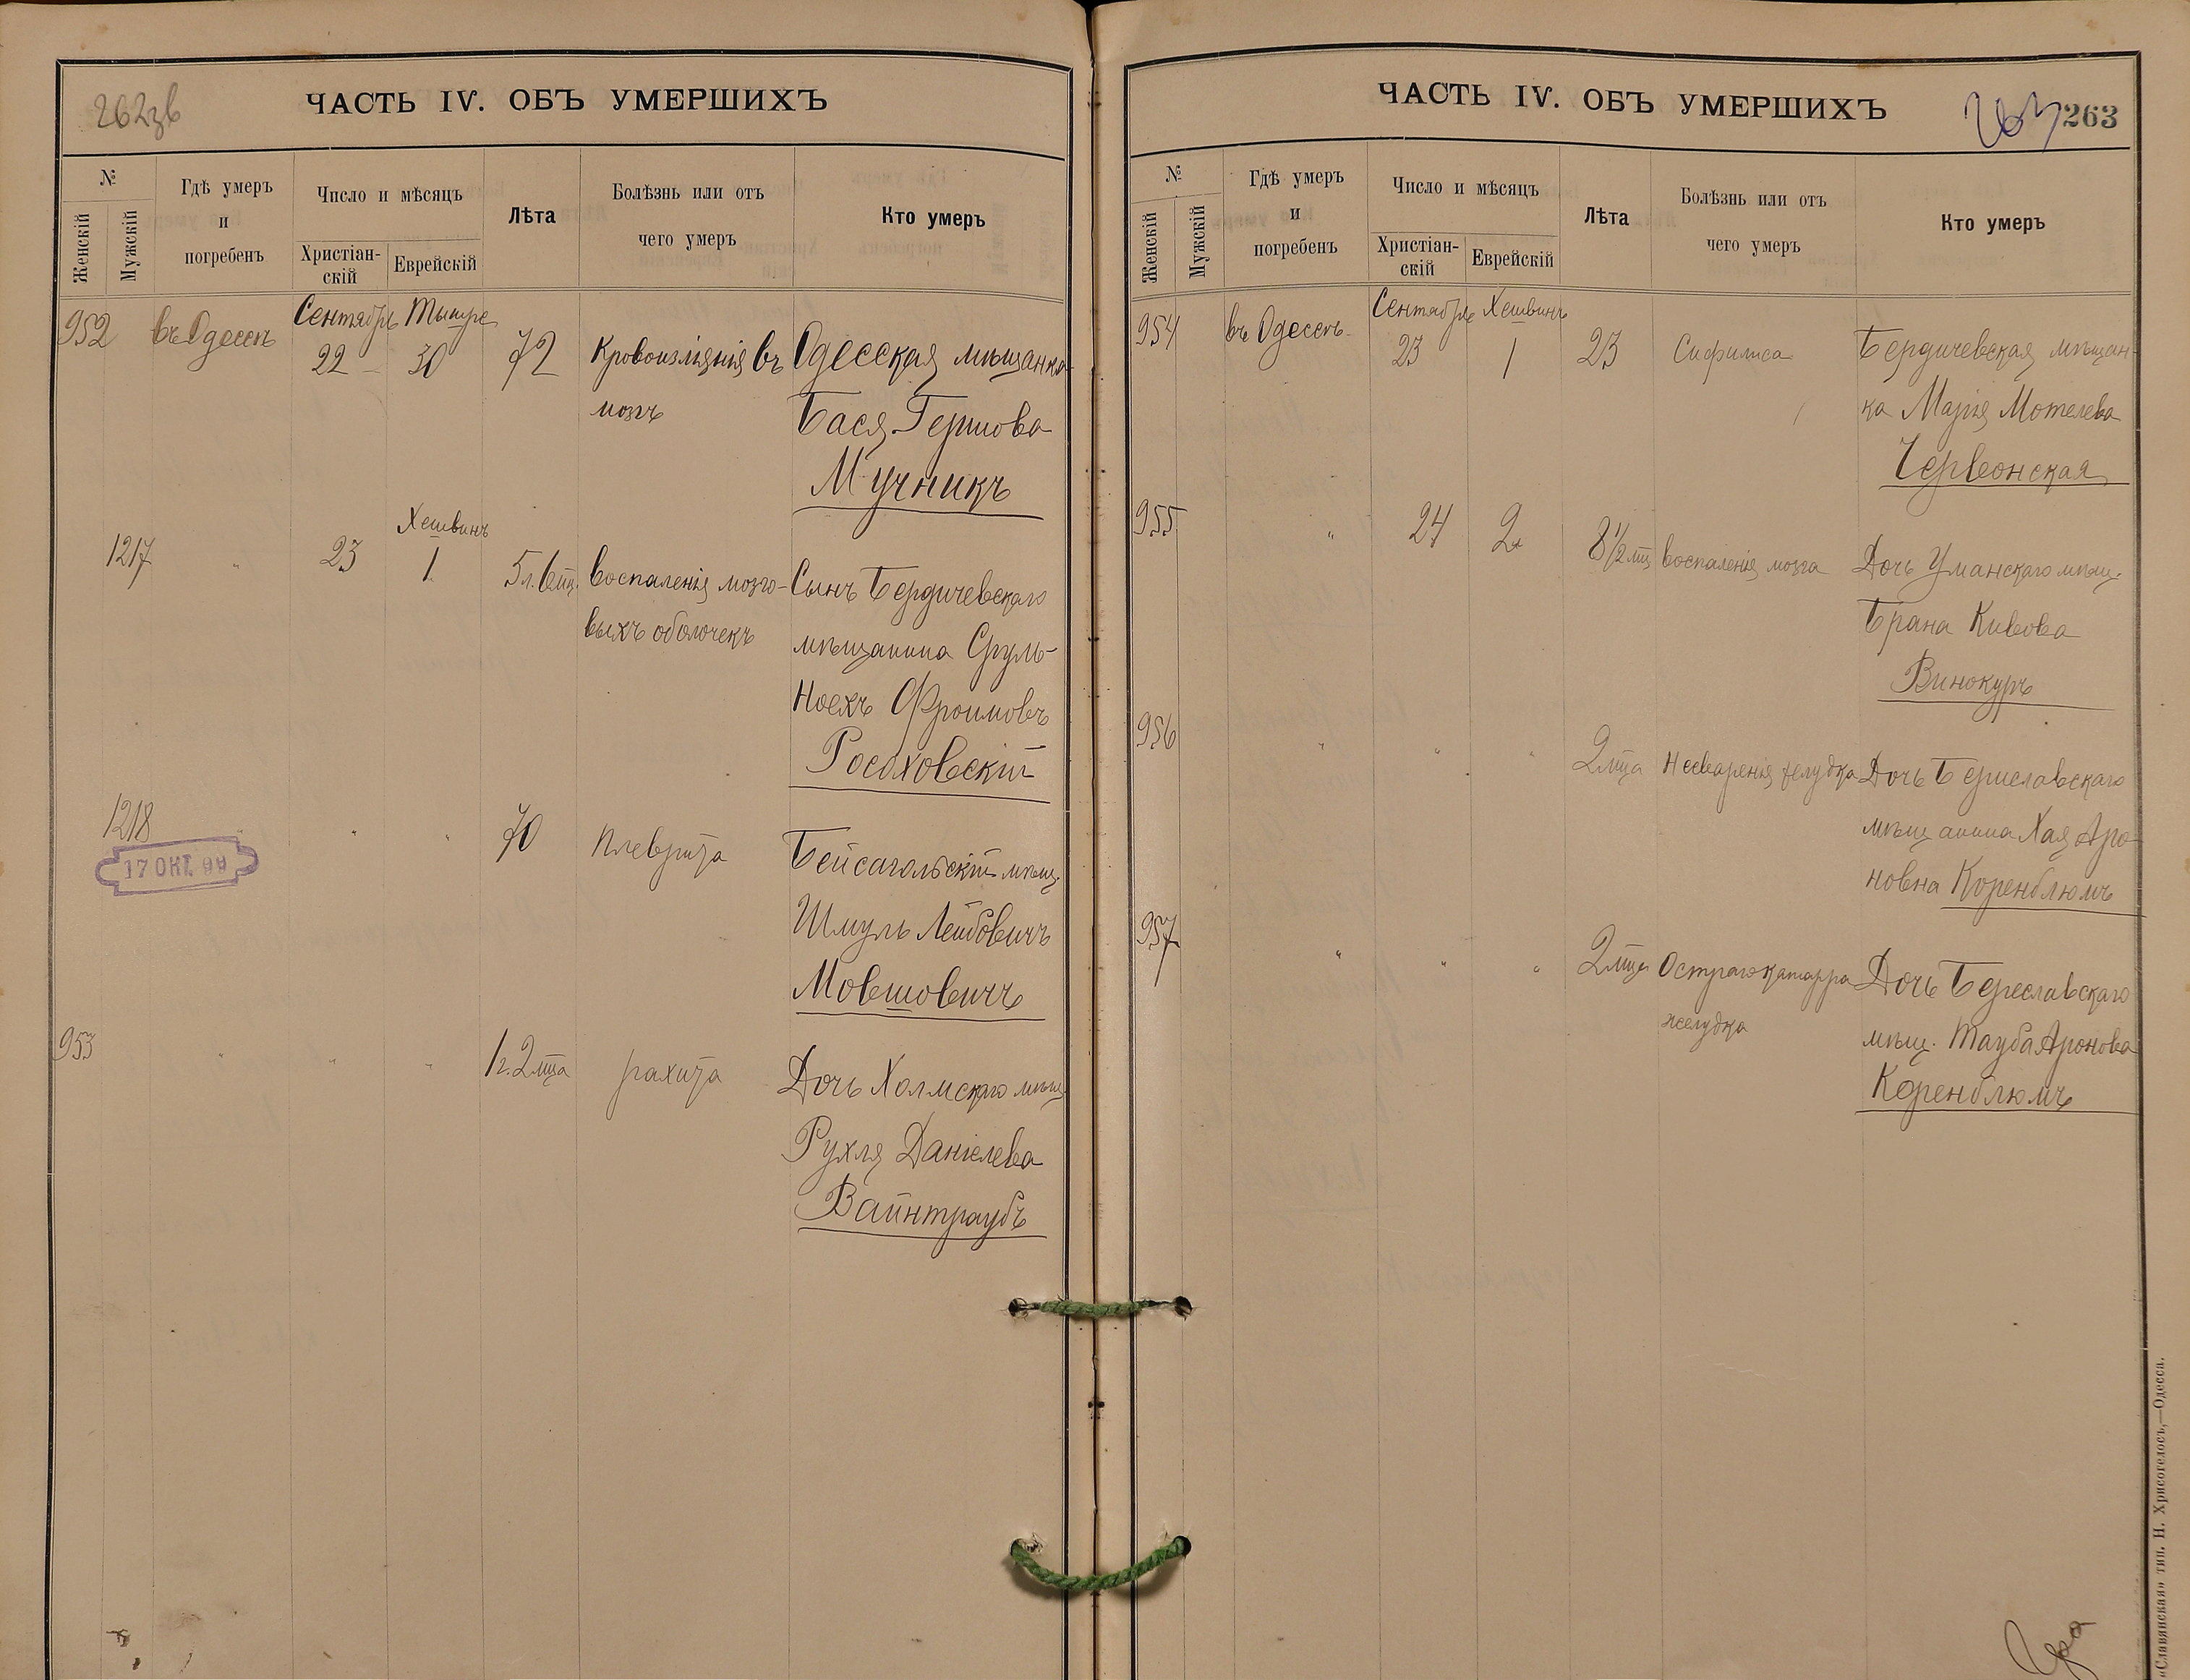 262зв
ЧАСТЬ IV. ОБЪ УМЕРШИХЪ
№
Женскій
Мужскій
Гдѣ умеръ
и
погребенъ
Число и мѣсяцъ
Христіан-
скій
Еврейскій
Лѣта
Болѣзнь или отъ
чего умеръ
Кто умеръ
952 въ Одессѣ Сентябрь 22 Тышре 30 72 Кровоизліянія въ Одесская мѣщанка
мозгъ Бася Гершова
Мучникъ
Хешвинъ
1217 " 23 1 5 л. 6 мц. воспаленія мозго- Сынъ Бердичевскаго
выхъ оболочекъ мѣщанина Сруль-
Ноехъ Фроимовъ
Росоховскій
1218 " " " 70 Плеврита Бейсагольскій мѣщ.
17 ОКТ. 99
Шмуль Лейбовичъ
Мовшовичъ
953 " " " 1 г. 2 мца рахита Дочь Холмскаго мѣщ.
Рухля Даніелева
Вайнтраубъ
ЧАСТЬ IV. ОБЪ УМЕРШИХЪ
263 263
№
Женскій
Мужскій
Гдѣ умеръ
и
погребенъ
Число и мѣсяцъ
Христіан-
скій
Еврейскій
Лѣта
Болѣзнь или отъ
чего умеръ
Кто умеръ
954 въ Одессѣ Сентябрь 23 Хешвинъ 1 23 Сифилиса Бердичевская мѣщан-
ка Марія Мотелева
Червонская
955 " 24 2 8 1/2 мц воспаленія мозга Дочь Уманскаго мѣщ.
Брана Кивова
Винокуръ
956 " " " 2 мца Несваренія желудка Дочь Бериславскаго
мѣщанина Хая Аро-
новна Коренблюмъ
957 " " " 2 мца Остраго катарра Дочь Береславскаго
желудка мѣщ. Тауба Аронова
Коренблюмъ
«Славянская» тип. Н. Хрисогелосъ,—Одесса.